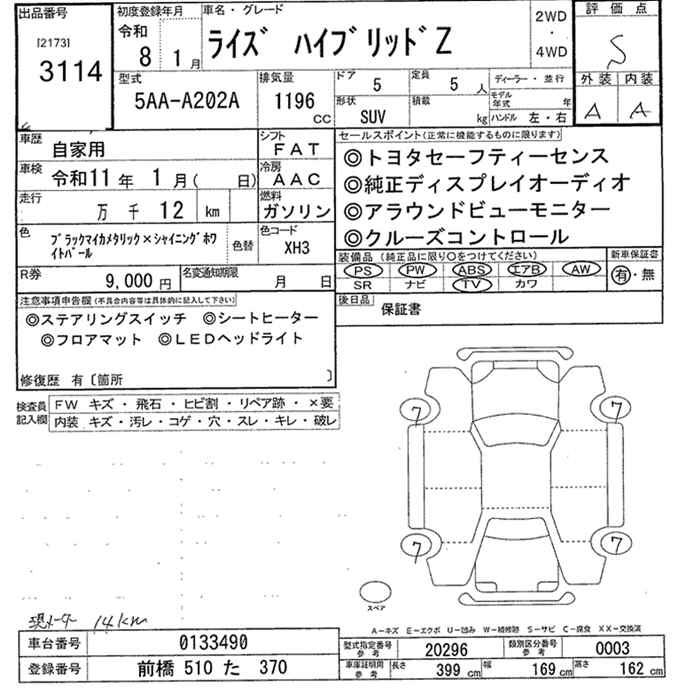 出品番号
[2173]
3114
初度登録年月
令和
8 1月
車名・グレード
ライズ ハイブリッドZ
2WD
・
4WD
評価点
S
外装 内装
A A
型式
5AA-A202A
排気量
1196
CC
ドア
5
定員
5 人
形状
SUV
積載
kg
ディーラー・並行
モデル
年式 年
ハンドル 左・右
車歴
自家用
シフト
FAT
車検
令和11年 1月( 日)
冷房
AAC
走行
万 千 12 km
燃料
ガソリン
色
ブラックマイカメタリック×シャイニングホワ
イトパール
色替
色コード
XH3
R券
9,000円
名変通知期限
月 日
セールスポイント(正常に機能するものに限ります)
◎トヨタセーフティーセンス
◎純正ディスプレイオーディオ
◎アラウンドビューモニター
◎クルーズコントロール
装備品 (純正品に限り○をつけてください)
PS PW ABS エアB AW
SR ナビ TV カワ
新車保証書
有・無
後日品
保証書
注意事項申告欄(不具合内容等は具体的に記入して下さい)
◎ステアリングスイッチ ◎シートヒーター
◎フロアマット ◎LEDヘッドライト
修復歴 有〔箇所 〕
検査員
記入欄
FW キズ・飛石・ヒビ割・リペア跡・×要
内装 キズ・汚レ・コゲ・穴・スレ・キレ・破レ
7
7
7
7
スペア
現メーター 14km
A－キズ E－エクボ U－凹み W－補修跡 S－サビ C－腐食 XX－交換済
車台番号
0133490
登録番号
前橋 510 た 370
型式指定番号
参考
20296
類別区分番号
参考
0003
車庫証明用
参考
長さ
399 cm
幅
169 cm
高さ
162 cm